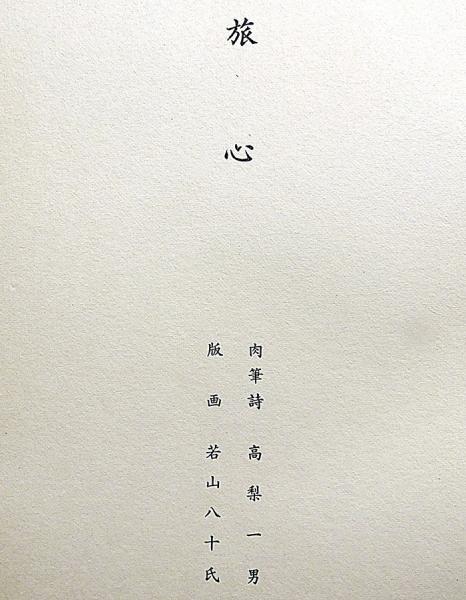 旅心
肉筆詩 高梨一男
版画 若山八十氏